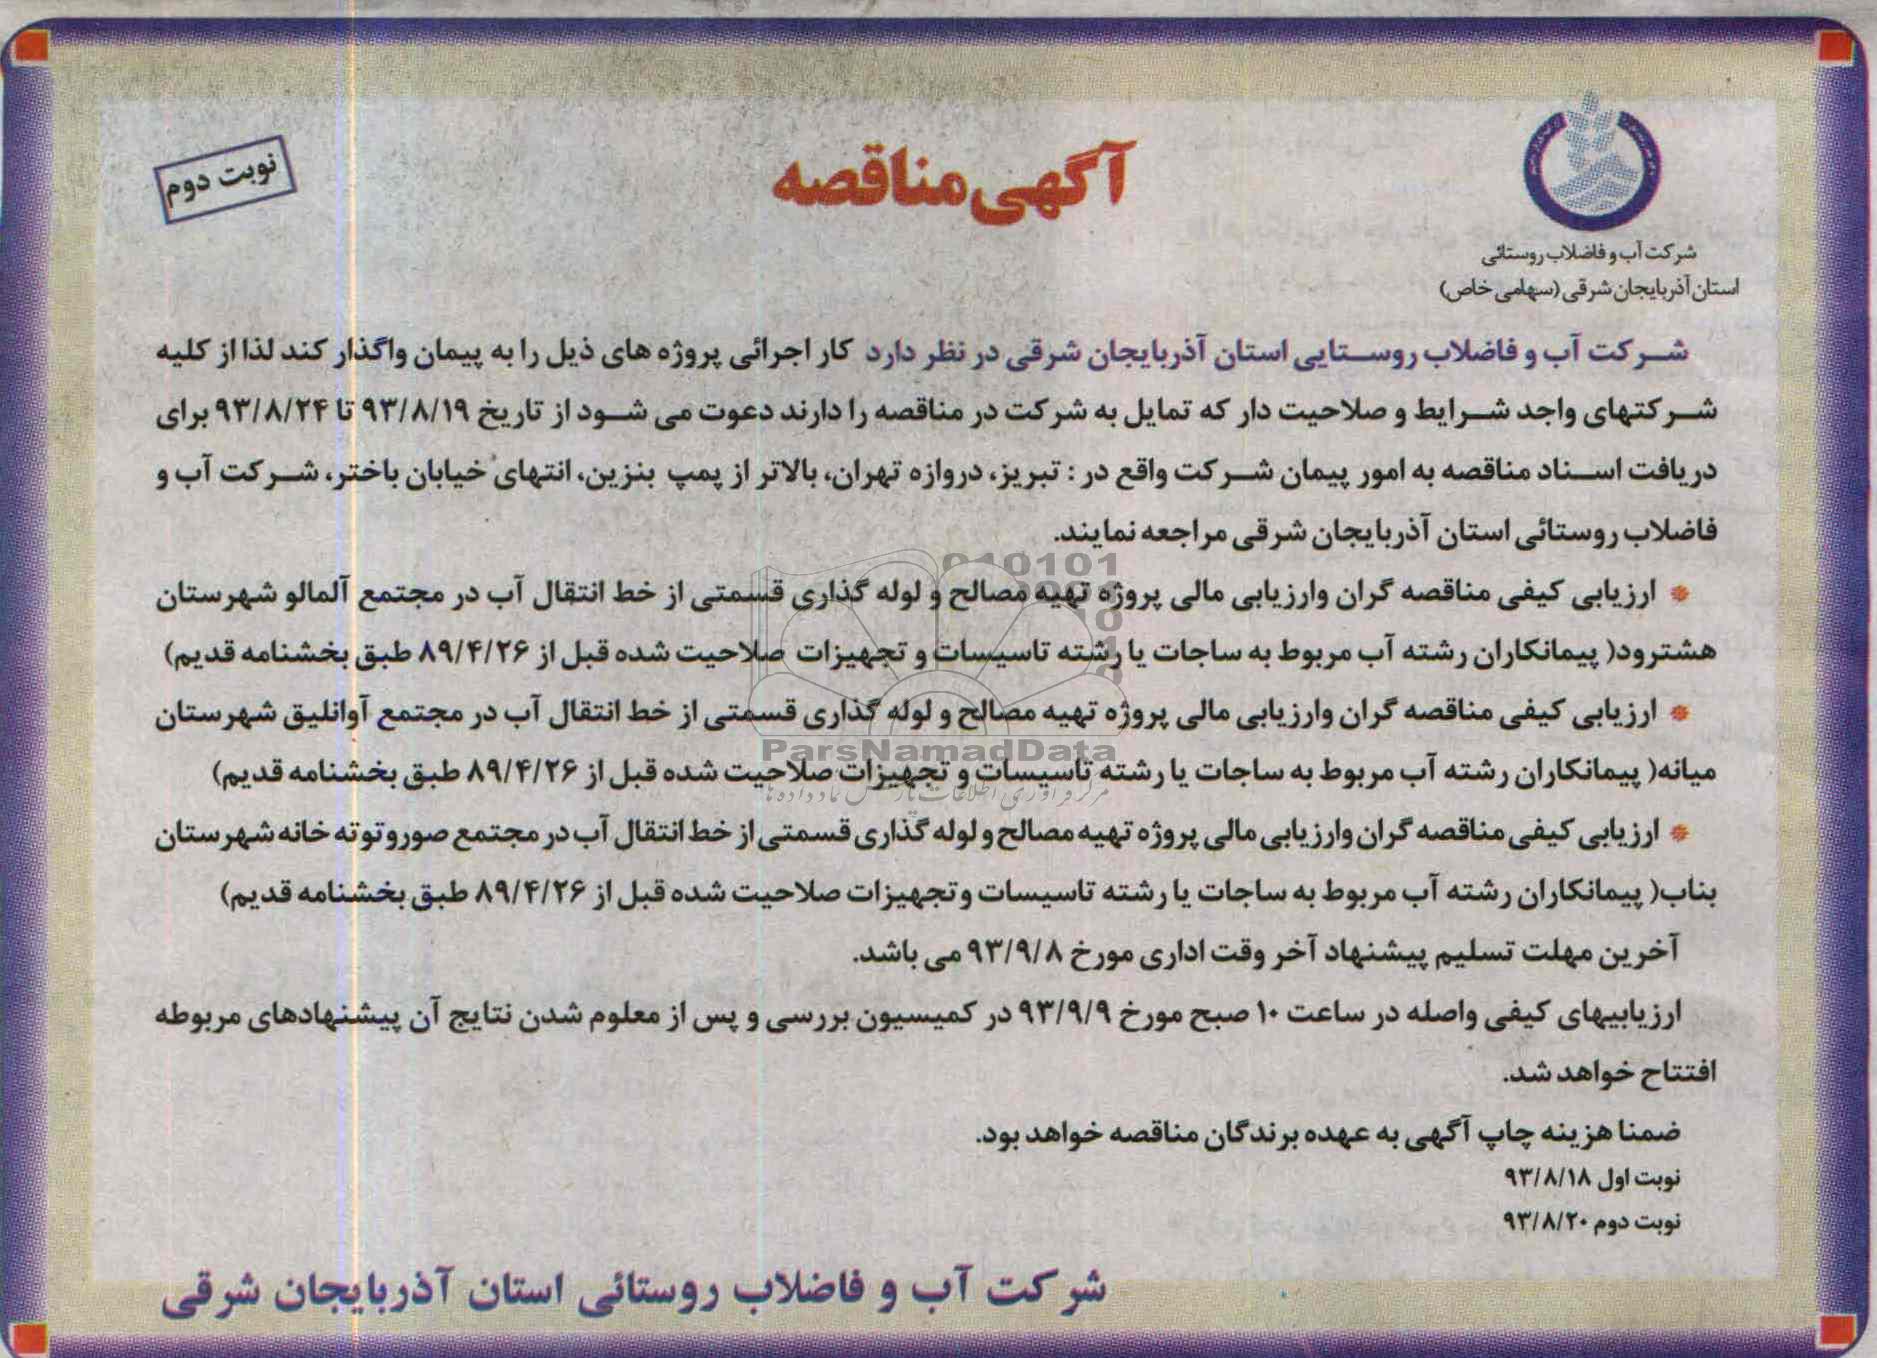 آگهی مناقصه
نوبت دوم
شرکت آب و فاضلاب روستائی
استان آذربایجان شرقی (سهامی خاص)
شرکت آب و فاضلاب روستایی استان آذربایجان شرقی در نظر دارد کار اجرائی پروژه های ذیل را به پیمان واگذار کند لذا از کلیه
شرکتهای واجد شرایط و صلاحیت دار که تمایل به شرکت در مناقصه را دارند دعوت می شود از تاریخ ۹۳/۸/۱۹ تا ۹۳/۸/۲۴ برای
دریافت اسناد مناقصه به امور پیمان شرکت واقع در : تبریز، دروازه تهران، بالاتر از پمپ بنزین، انتهای خیابان باختر، شرکت آب و
فاضلاب روستائی استان آذربایجان شرقی مراجعه نمایند.
* ارزیابی کیفی مناقصه گران وارزیابی مالی پروژه تهیه مصالح و لوله گذاری قسمتی از خط انتقال آب در مجتمع آلمالو شهرستان
هشترود( پیمانکاران رشته آب مربوط به ساجات یا رشته تاسیسات و تجهیزات صلاحیت شده قبل از ۸۹/۴/۲۶ طبق بخشنامه قدیم)
* ارزیابی کیفی مناقصه گران وارزیابی مالی پروژه تهیه مصالح و لوله گذاری قسمتی از خط انتقال آب در مجتمع آوانلیق شهرستان
میانه( پیمانکاران رشته آب مربوط به ساجات یا رشته تاسیسات و تجهیزات صلاحیت شده قبل از ۸۹/۴/۲۶ طبق بخشنامه قدیم)
* ارزیابی کیفی مناقصه گران وارزیابی مالی پروژه تهیه مصالح و لوله گذاری قسمتی از خط انتقال آب در مجتمع صور و توته خانه شهرستان
بناب( پیمانکاران رشته آب مربوط به ساجات یا رشته تاسیسات وتجهیزات صلاحیت شده قبل از ۸۹/۴/۲۶ طبق بخشنامه قدیم)
آخرین مهلت تسلیم پیشنهاد آخر وقت اداری مورخ ۹۳/۹/۸ می باشد.
ارزیابیهای کیفی واصله در ساعت ۱۰ صبح مورخ ۹۳/۹/۹ در کمیسیون بررسی و پس از معلوم شدن نتایج آن پیشنهادهای مربوطه
افتتاح خواهد شد.
ضمنا هزینه چاپ آگهی به عهده برندگان مناقصه خواهد بود.
نوبت اول ۹۳/۸/۱۸
نوبت دوم ۹۳/۸/۲۰
شرکت آب و فاضلاب روستائی استان آذربایجان شرقی
ParsNamadData
مرکز فرآوری اطلاعات پارس نماد داده ها